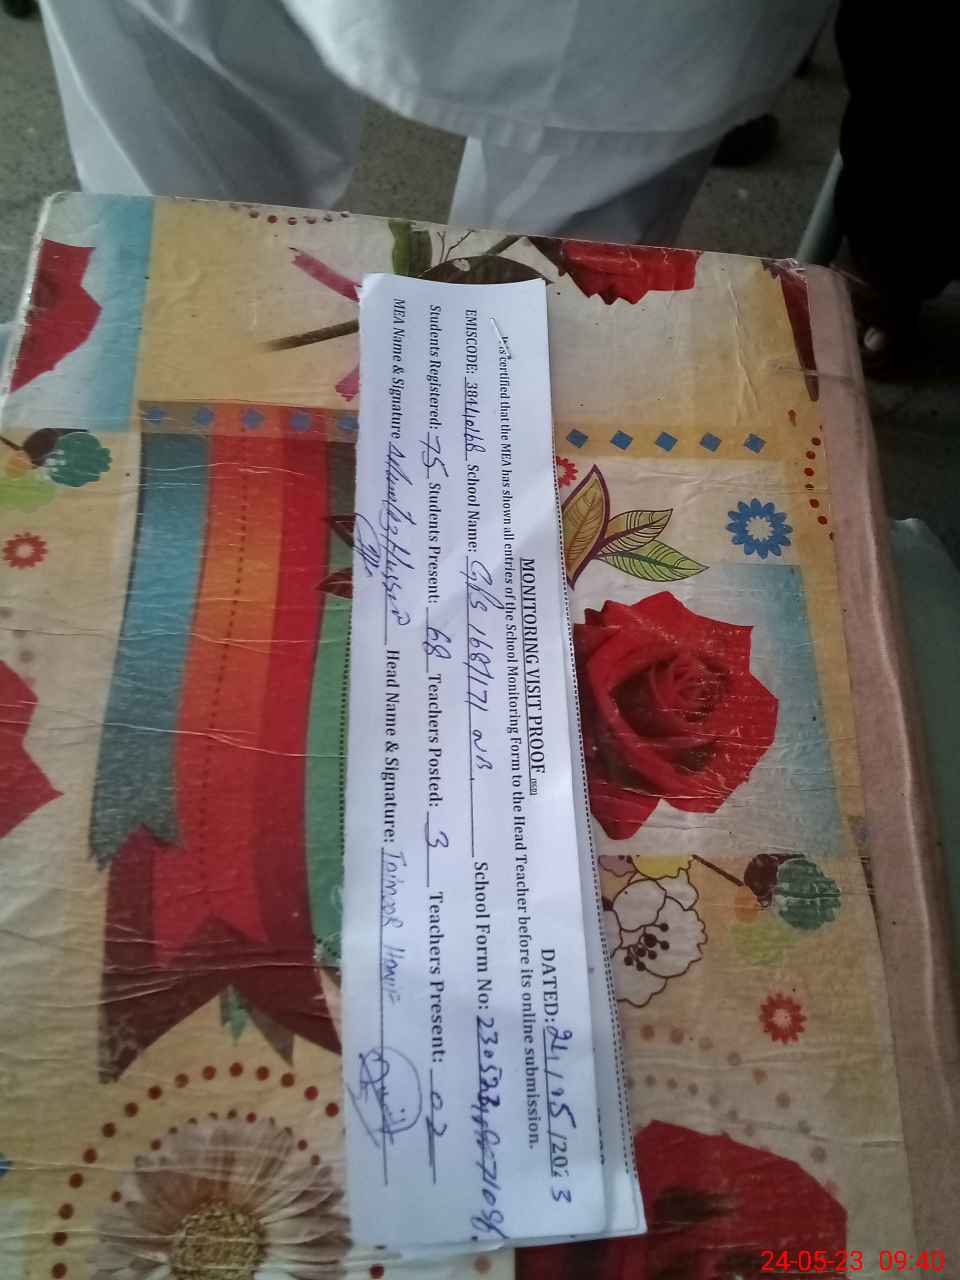 MONITORING VISIT PROOF
DATED: 24/05/2023
It is certified that the MEA has shown all entries of the School Monitoring Form to the Head Teacher before its online submission.
EMISCODE: School Name: GPS 168/171 NB School Form No:
Students Registered: 75 Students Present: 68 Teachers Posted: 3 Teachers Present: 02
MEA Name & Signature Head Name & Signature: Taimoor Hanif
24-05-23 09:40